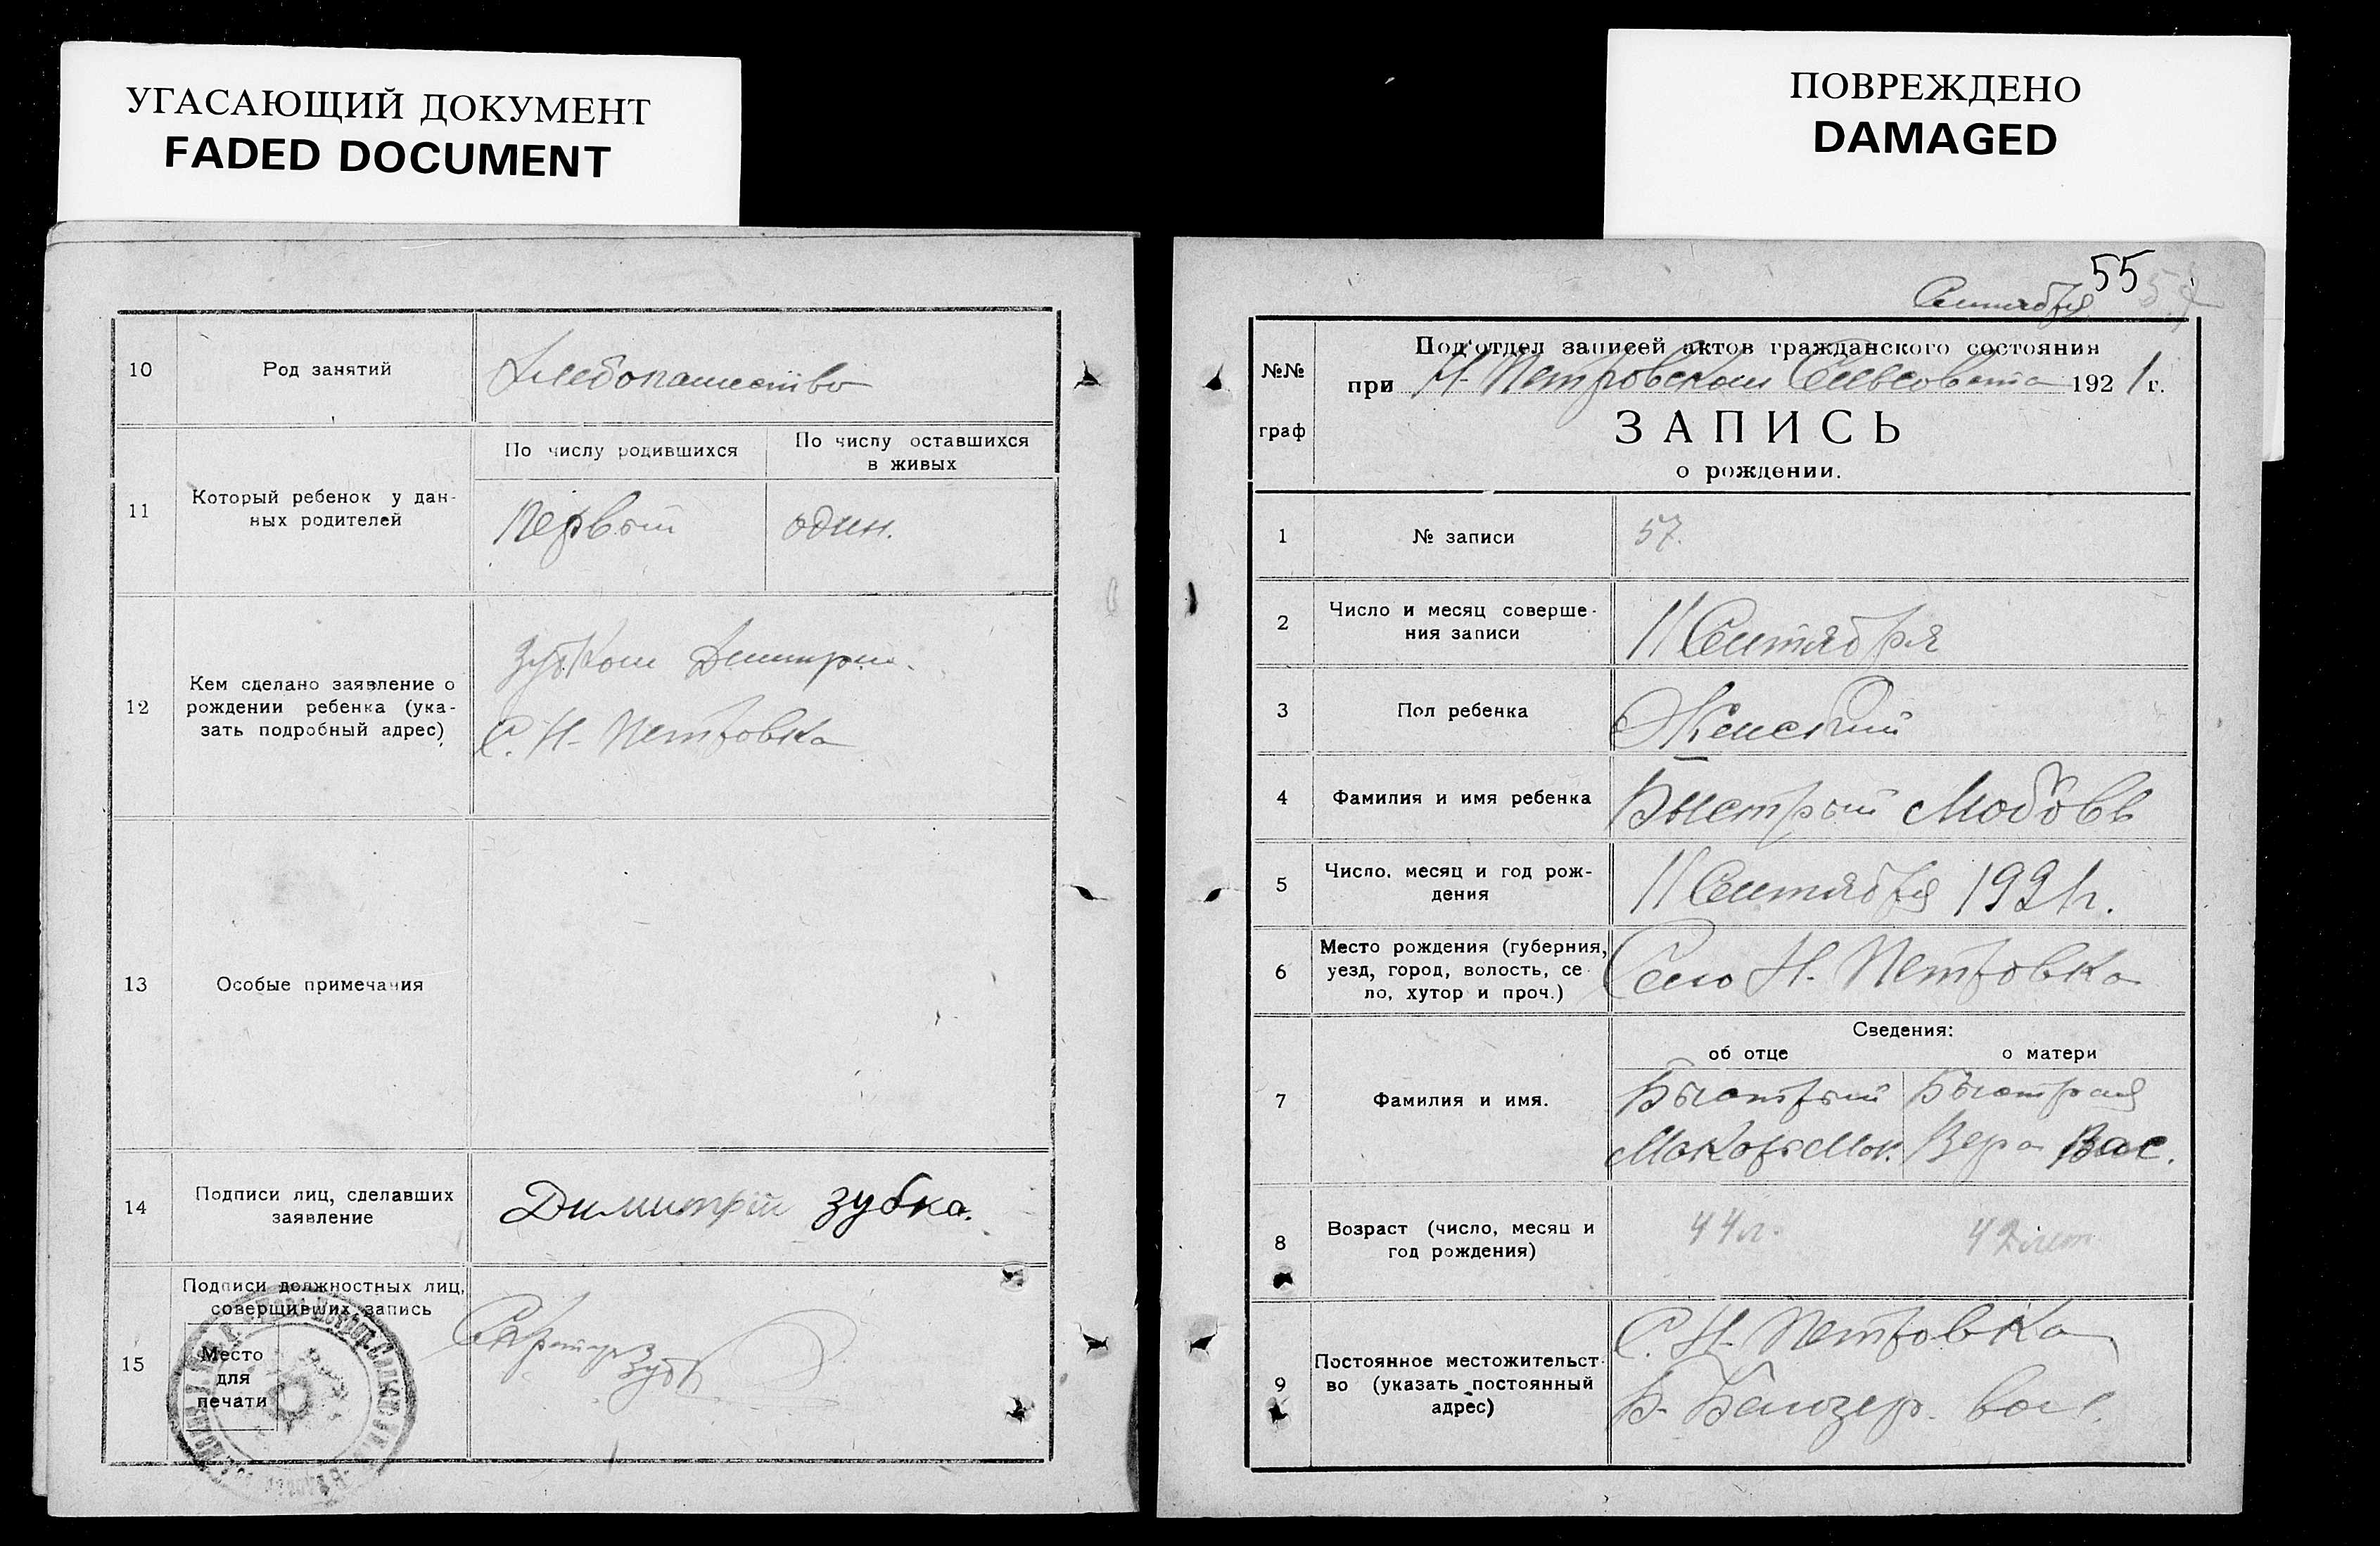 УГАСАЮЩИЙ ДОКУМЕНТ
FADED DOCUMENT
10
Род занятий
Хлебопашество
11
Который ребенок у дан-
ных родителей
По числу родившихся
По числу оставшихся
в живых
Первый
один.
12
Кем сделано заявление о
рождении ребенка (ука-
зать подробный адрес)
Зубком Димитри.
С. Н- Петровка
13
Особые примечания
14
Подписи лиц, сделавших
заявление
Димитрий зубка.
15
Подписи должностных лиц,
совершивших запись
Место
для
печати
ПОВРЕЖДЕНО
DAMAGED
55
Сентября
№№
граф
Под'отдел записей актов гражданского состояния
при Н- Петровском Сельсовета 1921 г.
ЗАПИСЬ
о рождении.
1
№ записи
57.
2
Число и месяц соверше-
ния записи
11 Сентября
3
Пол ребенка
Женский
4
Фамилия и имя ребенка
Быстрый Любовь
5
Число, месяц и год рож-
дения
11 Сентября 1921 г.
6
Место рождения (губерния,
уезд, город, волость, се
ло, хутор и проч.)
Село Н. Петровка
7
Фамилия и имя.
Сведения:
об отце
о матери
Быстрый
Макар Мак.
Быстрая
Вера Вас.
8
Возраст (число, месяц и
год рождения)
44 л.
42 лет
9
Постоянное местожительст-
во (указать постоянный
адрес)
С. Н- Петровка
Б- Белозер. вол.